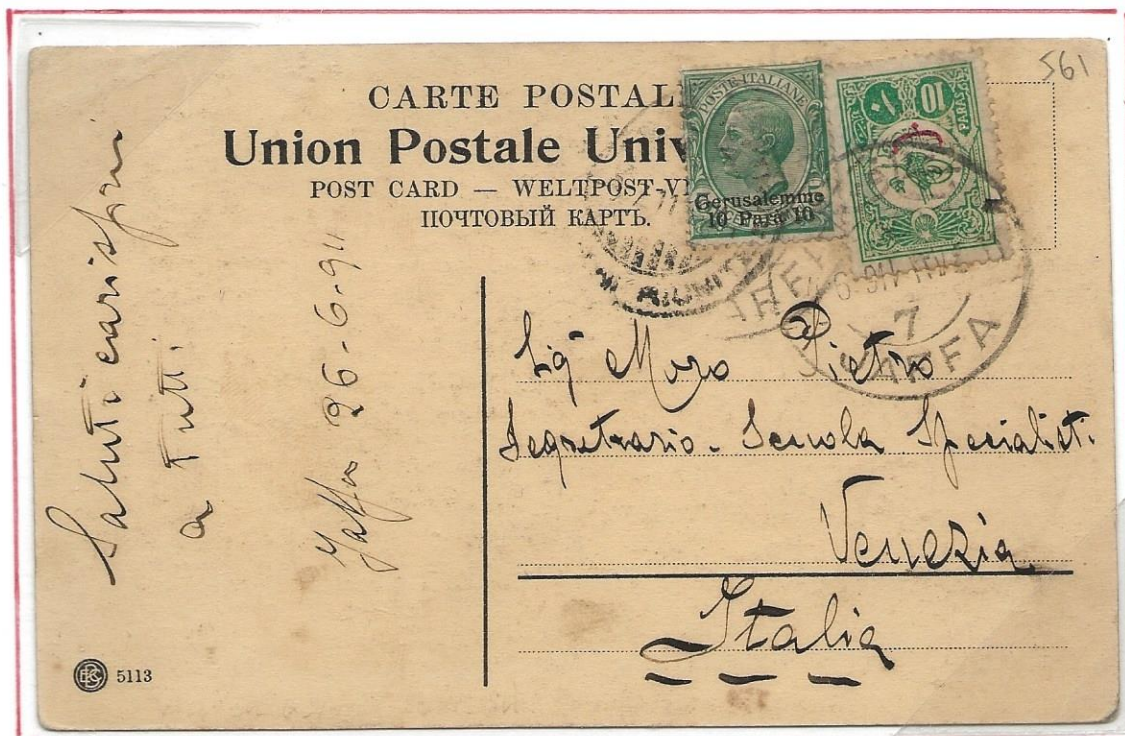 561
CARTE POSTAL
Union Postale Univ
POST CARD — WELTPOST-V
ПОЧТОВЫЙ КАРТЪ.
POSTE ITALIANE
Gerusalemme
10 Para 10
10
١٠
PARAS
7
JAFFA
Saluti carissimi
a tutti
Jaffa 26-6-911
Sig Moro Pietro
Segretario - Scuola Specialisti
Venezia
Italia
5113